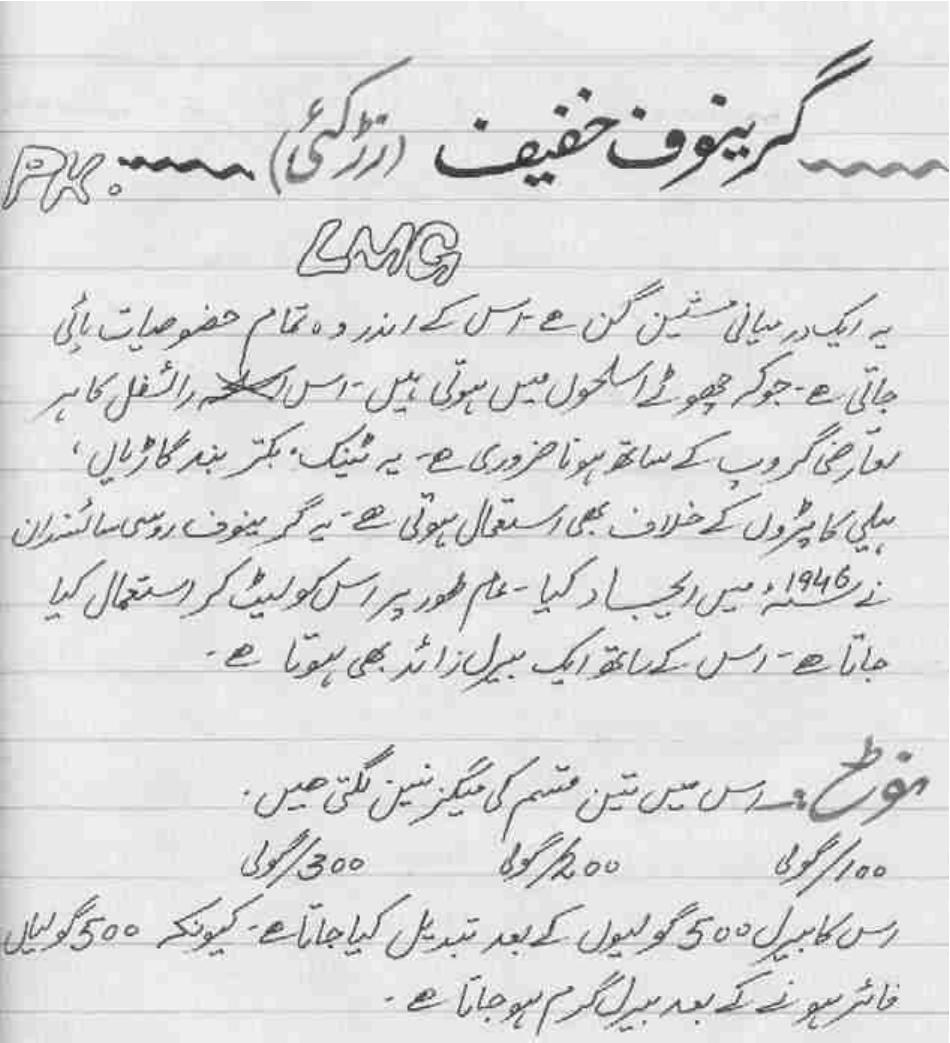 گرینوف خفیف (زڑکئی) PK.
LMG
یہ ایک درمیانی مشین گن ہے - اس کے اندر وہ تمام خصوصیات پائی
جاتی ہے - جوکہ چھوٹے اسلحوں میں ہوتی ہیں - اس رائفل کا ہر
تعارضی گروپ کے ساتھ ہونا ضروری ہے - یہ ٹینک، بکتر بند گاڑیاں،
ہیلی کاپٹروں کے خلاف بھی استعمال ہوتی ہے - یہ گرینوف روسی سائنسدان
نے 1946ء میں ایجاد کیا - عام طور پر اس کو لیٹ کر استعمال کیا
جاتا ہے - اس کے ساتھ ایک بیرل زائد بھی ہوتا ہے -
نوٹ :- اس میں تین قسم کی میگزینین لگتی ھیں .
100/گولی 200/گولی 300/گولی
اس کا بیرل 500 گولیوں کے بعد تبدیل کیا جاتا ہے - کیونکہ 500 گولیاں
فائر ہونے کے بعد بیرل گرم ہو جاتا ہے -